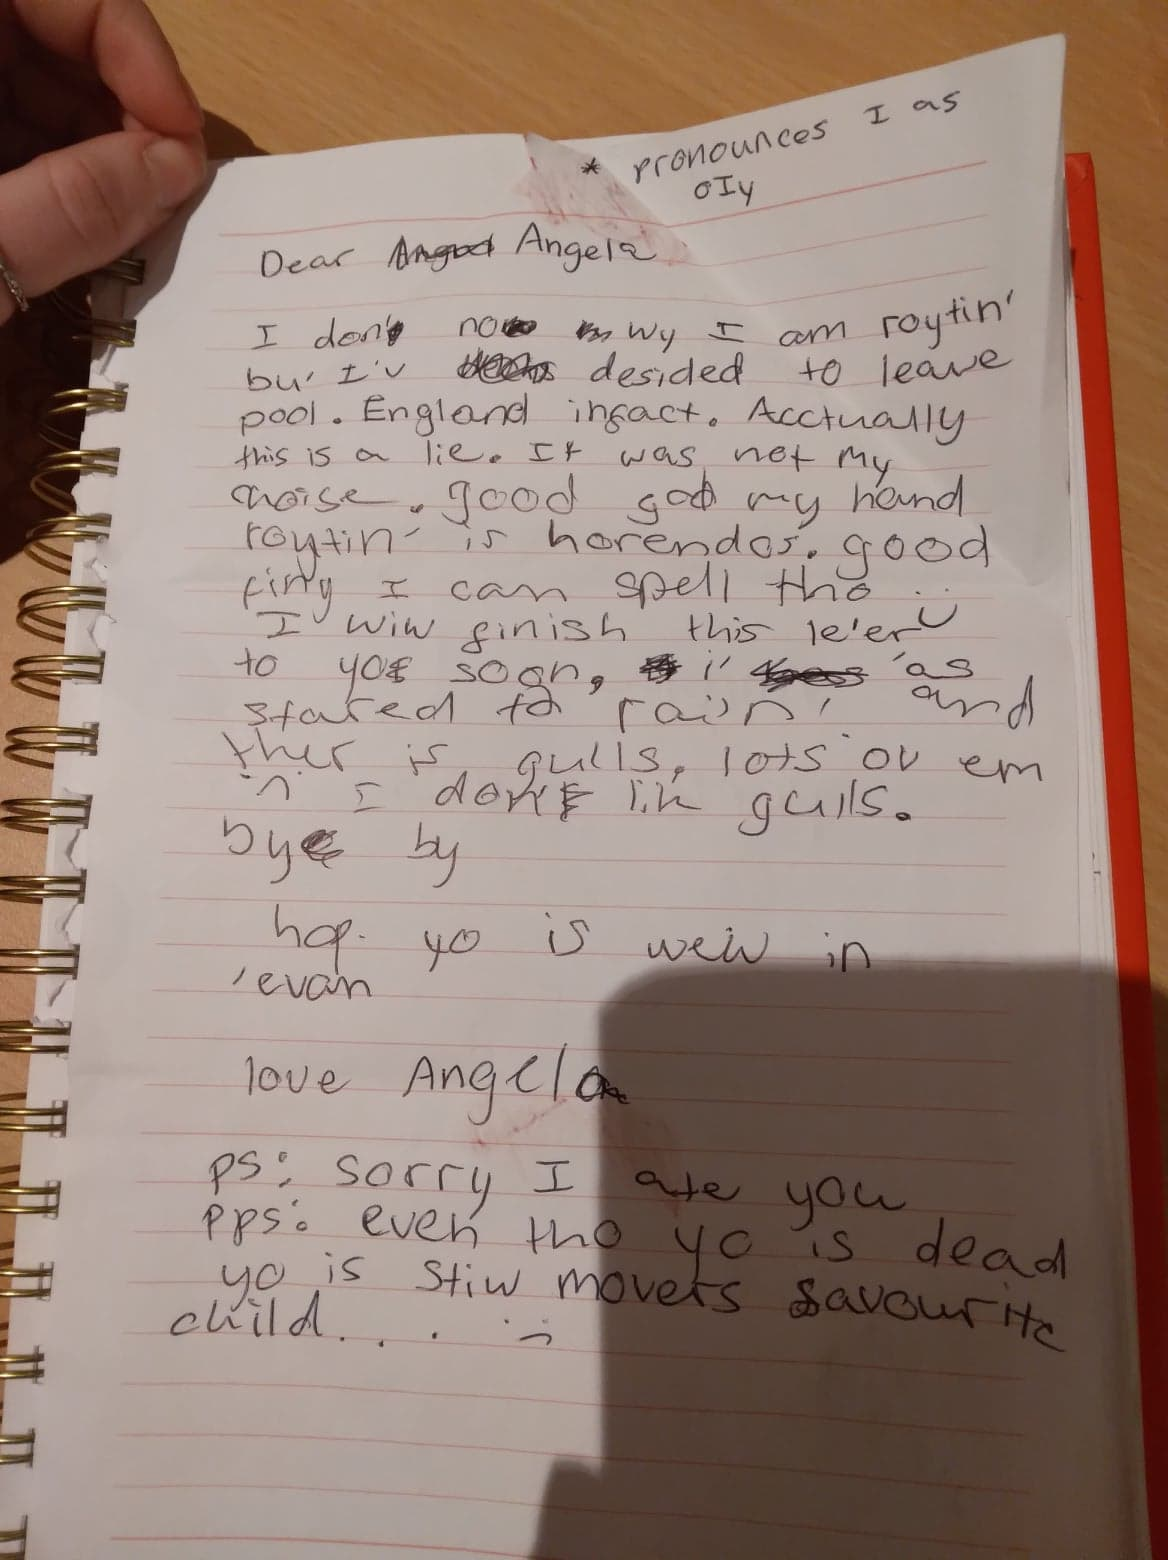 * pronounces I as
oIy
Dear Angela
I don' no wy I am roytin'
bu' I'v desided to leave
pool. England infact. Acctually
this is a lie. It was not my
choise. good god my hand
roytin' is horendos. good
fing I can spell tho :)
I wiw finish this le'er
to yos soon, i' 'as
stared to rain, and
ther is gulls, lots ov em
'n' I don't lik gulls.
bye by
hop. yo is weiw in
'evan
love Angela
ps: sorry I ate you
pps: even tho yo is dead
yo is stiw movers favourite
child... :(